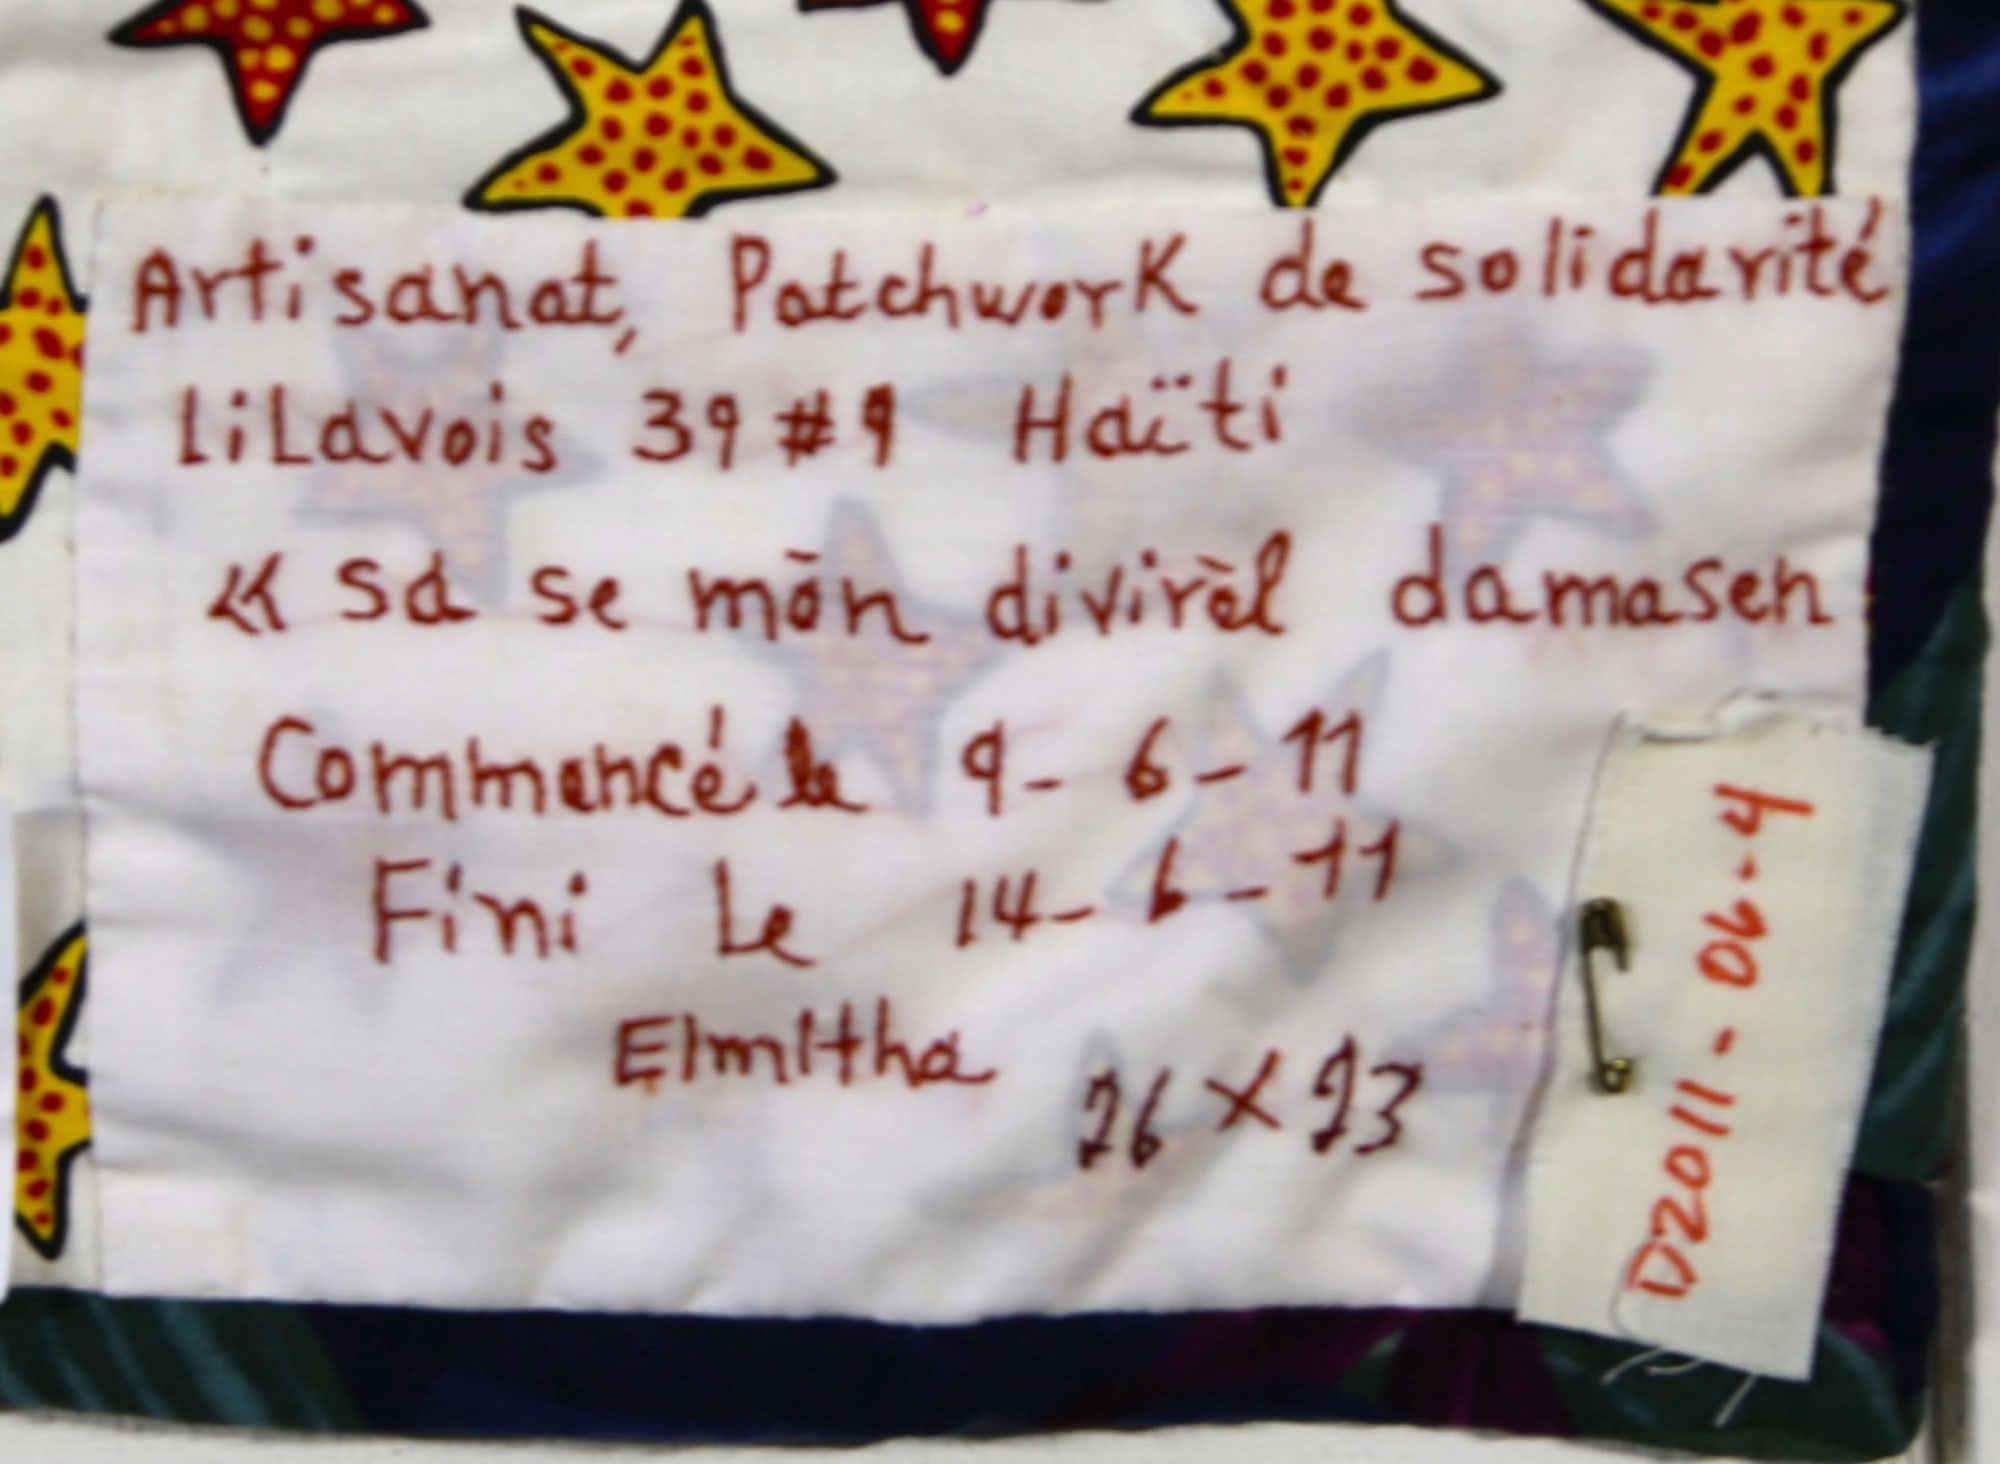 Artisanat, Patchwork de solidarité
LiLavois 39 #9 Haïti
« sa se mòn divirèl damasen
Commencé le 9-6-11
Fini Le 14-6-11
Elmitha
26 x 23
D2011-06-4